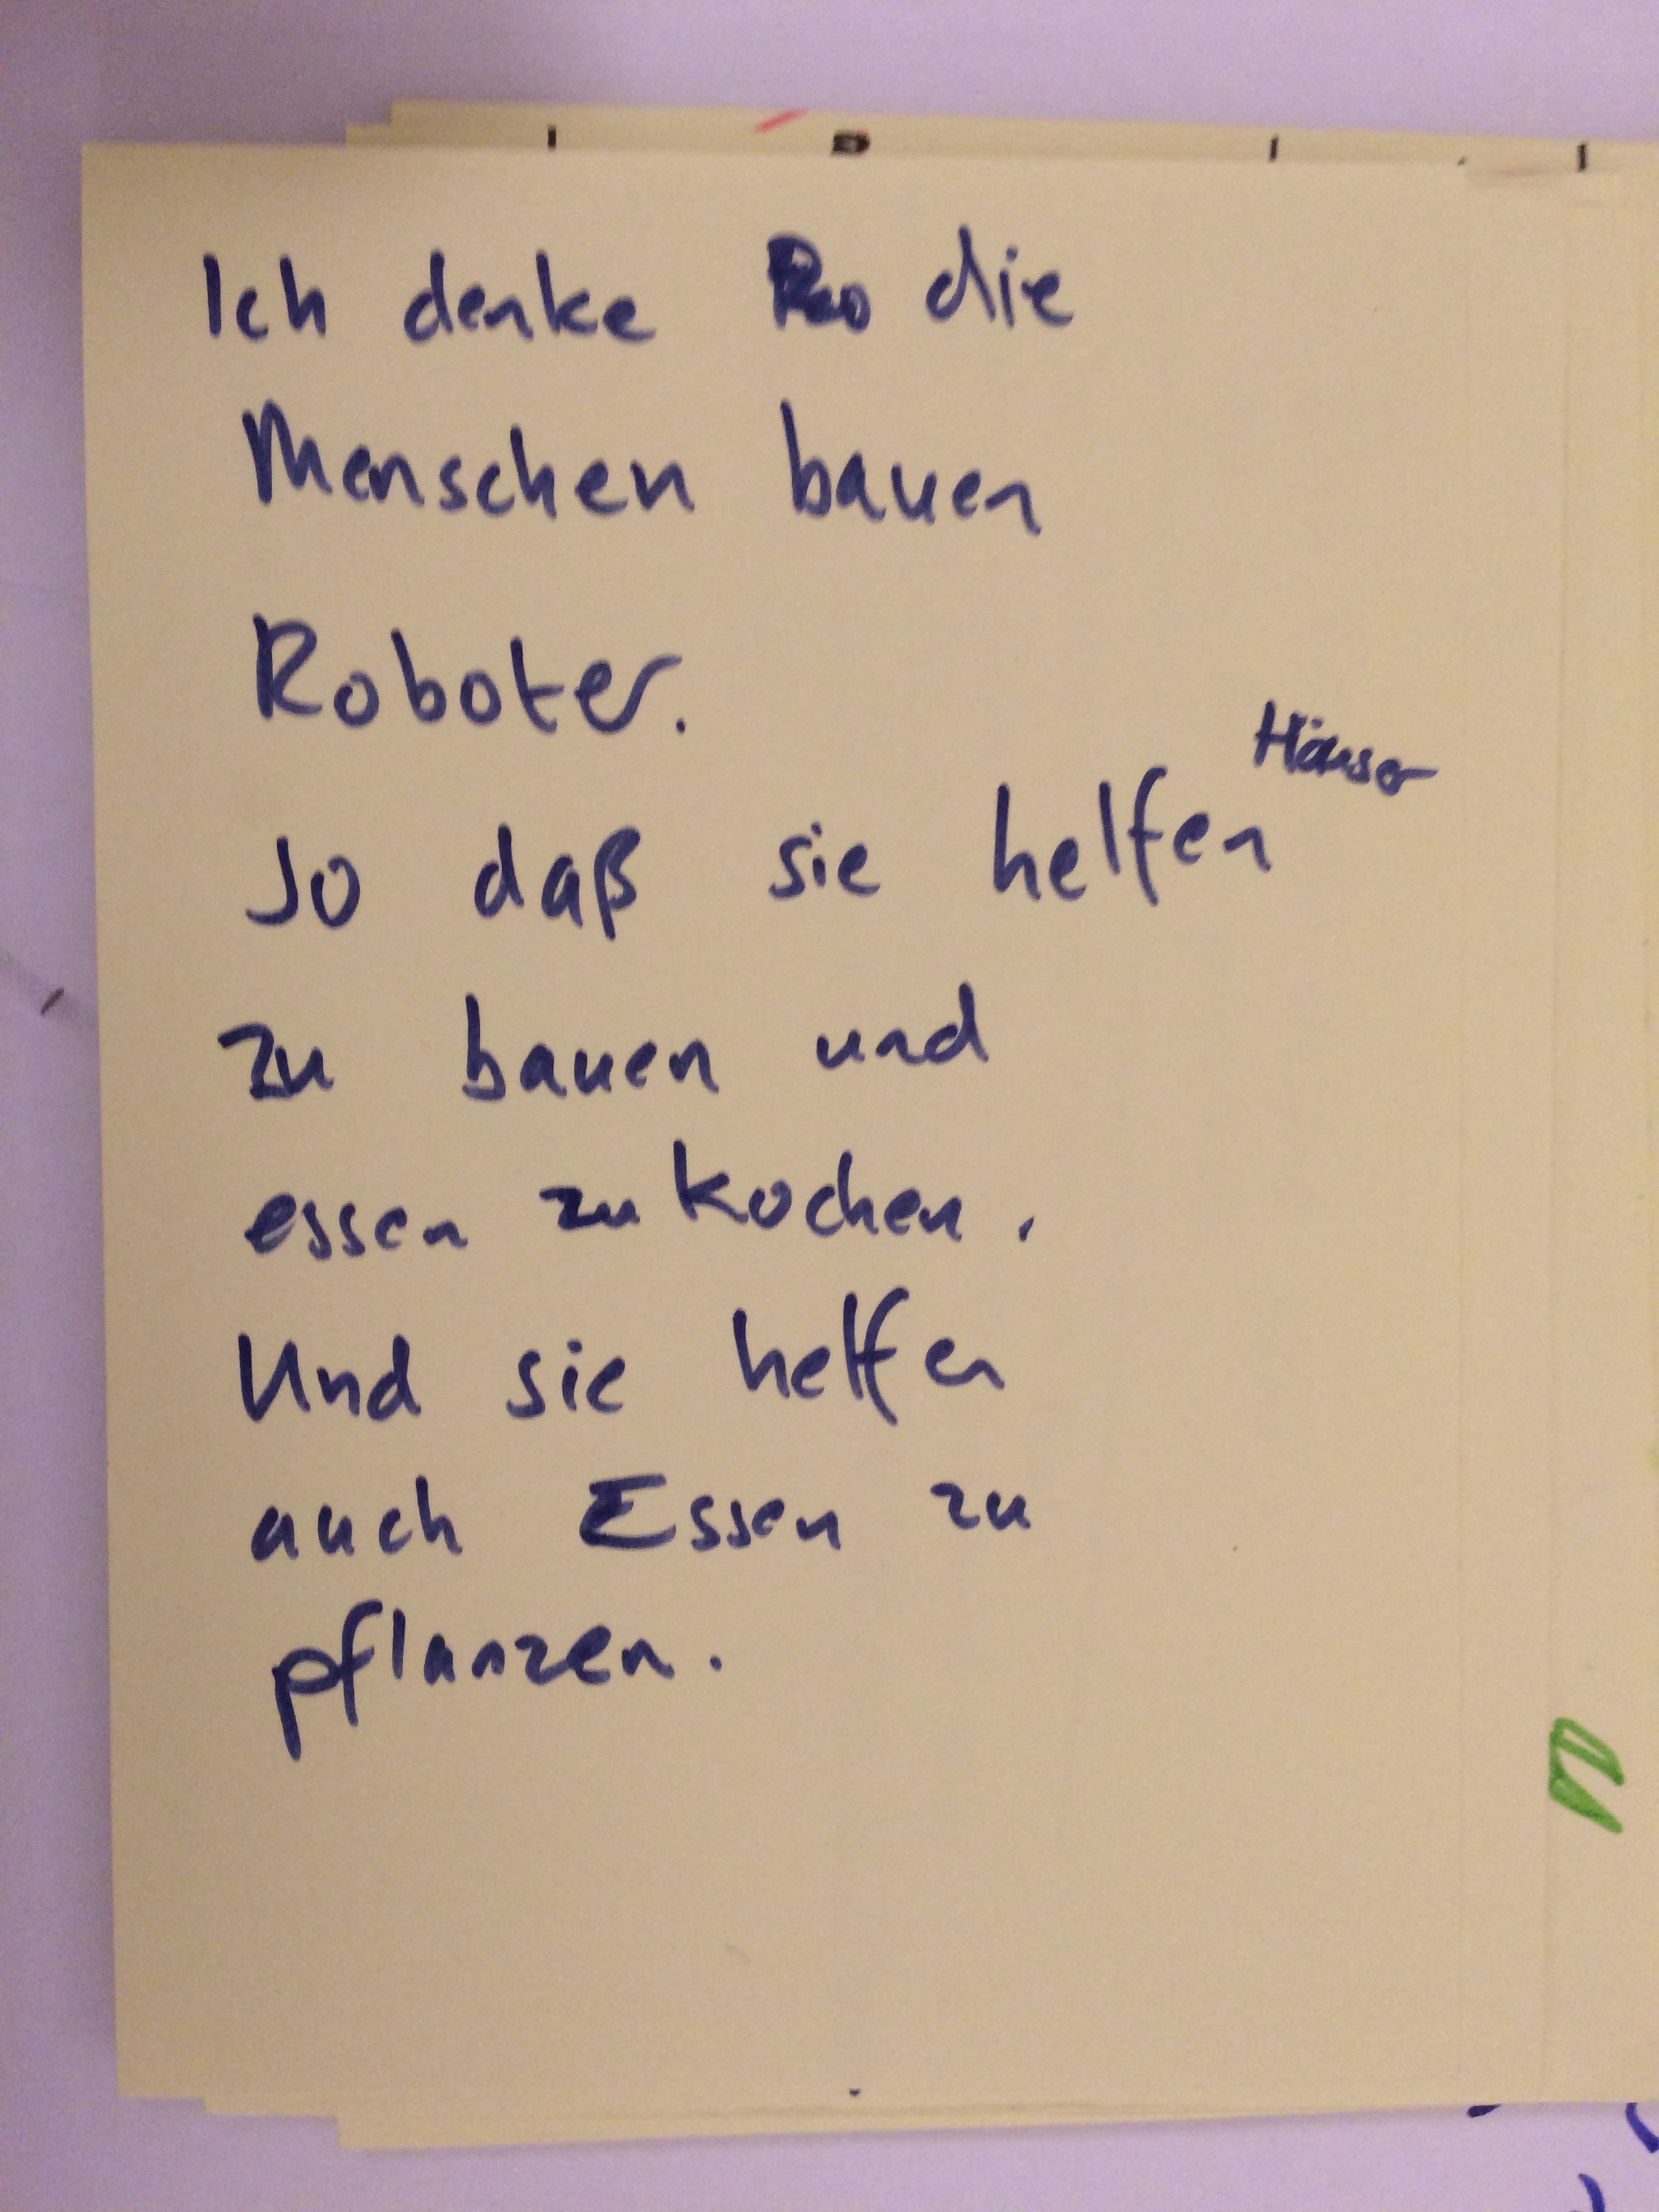 Ich denke Ro die
Menschen bauen
Roboter.
So daß sie helfen Häuser
zu bauen und
essen zu kochen.
Und sie helfen
auch Essen zu
pflanzen.